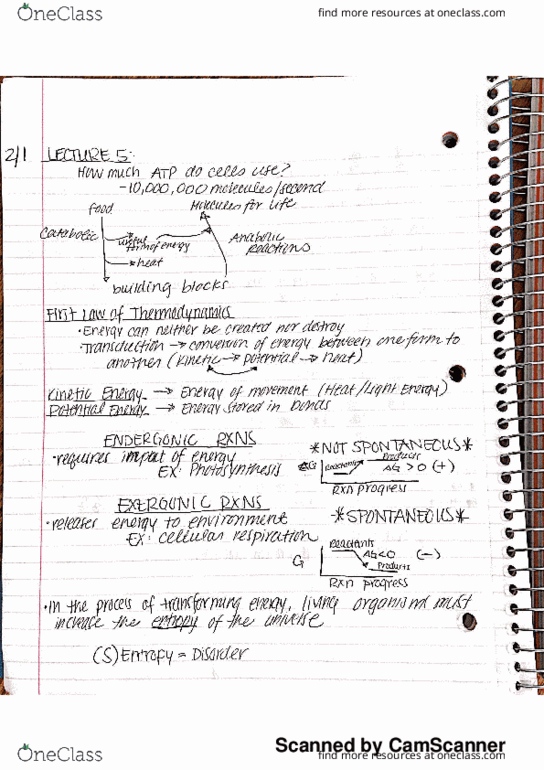 OneClass
find more resources at oneclass.com
2/1 LECTURE 5:
How much ATP do cells use?
-10,000,000 molecules/second
food
Molecules for life
Catabolic
useful form of energy
Anabolic Reactions
heat
building blocks
First Law of Thermodynamics
• Energy can neither be created nor destroy
• Transduction → conversion of energy between one form to
another (kinetic → potential → heat)
Kinetic Energy → Energy of movement (Heat/Light Energy)
Potential Energy → Energy stored in bonds
ENDERGONIC RXNS
*NOT SPONTANEOUS*
• requires impact of energy
EX: Photosynthesis
G
Reactants
Products
ΔG > 0 (+)
Rxn progress
EXERGONIC RXNS
*SPONTANEOUS*
• releases energy to environment
EX: cellular respiration
G
Reactants
ΔG<0 (-)
Products
Rxn progress
• In the process of transforming energy, living organisms must
increase the entropy of the universe
(S) Entropy = Disorder
Scanned by CamScanner
OneClass
find more resources at oneclass.com